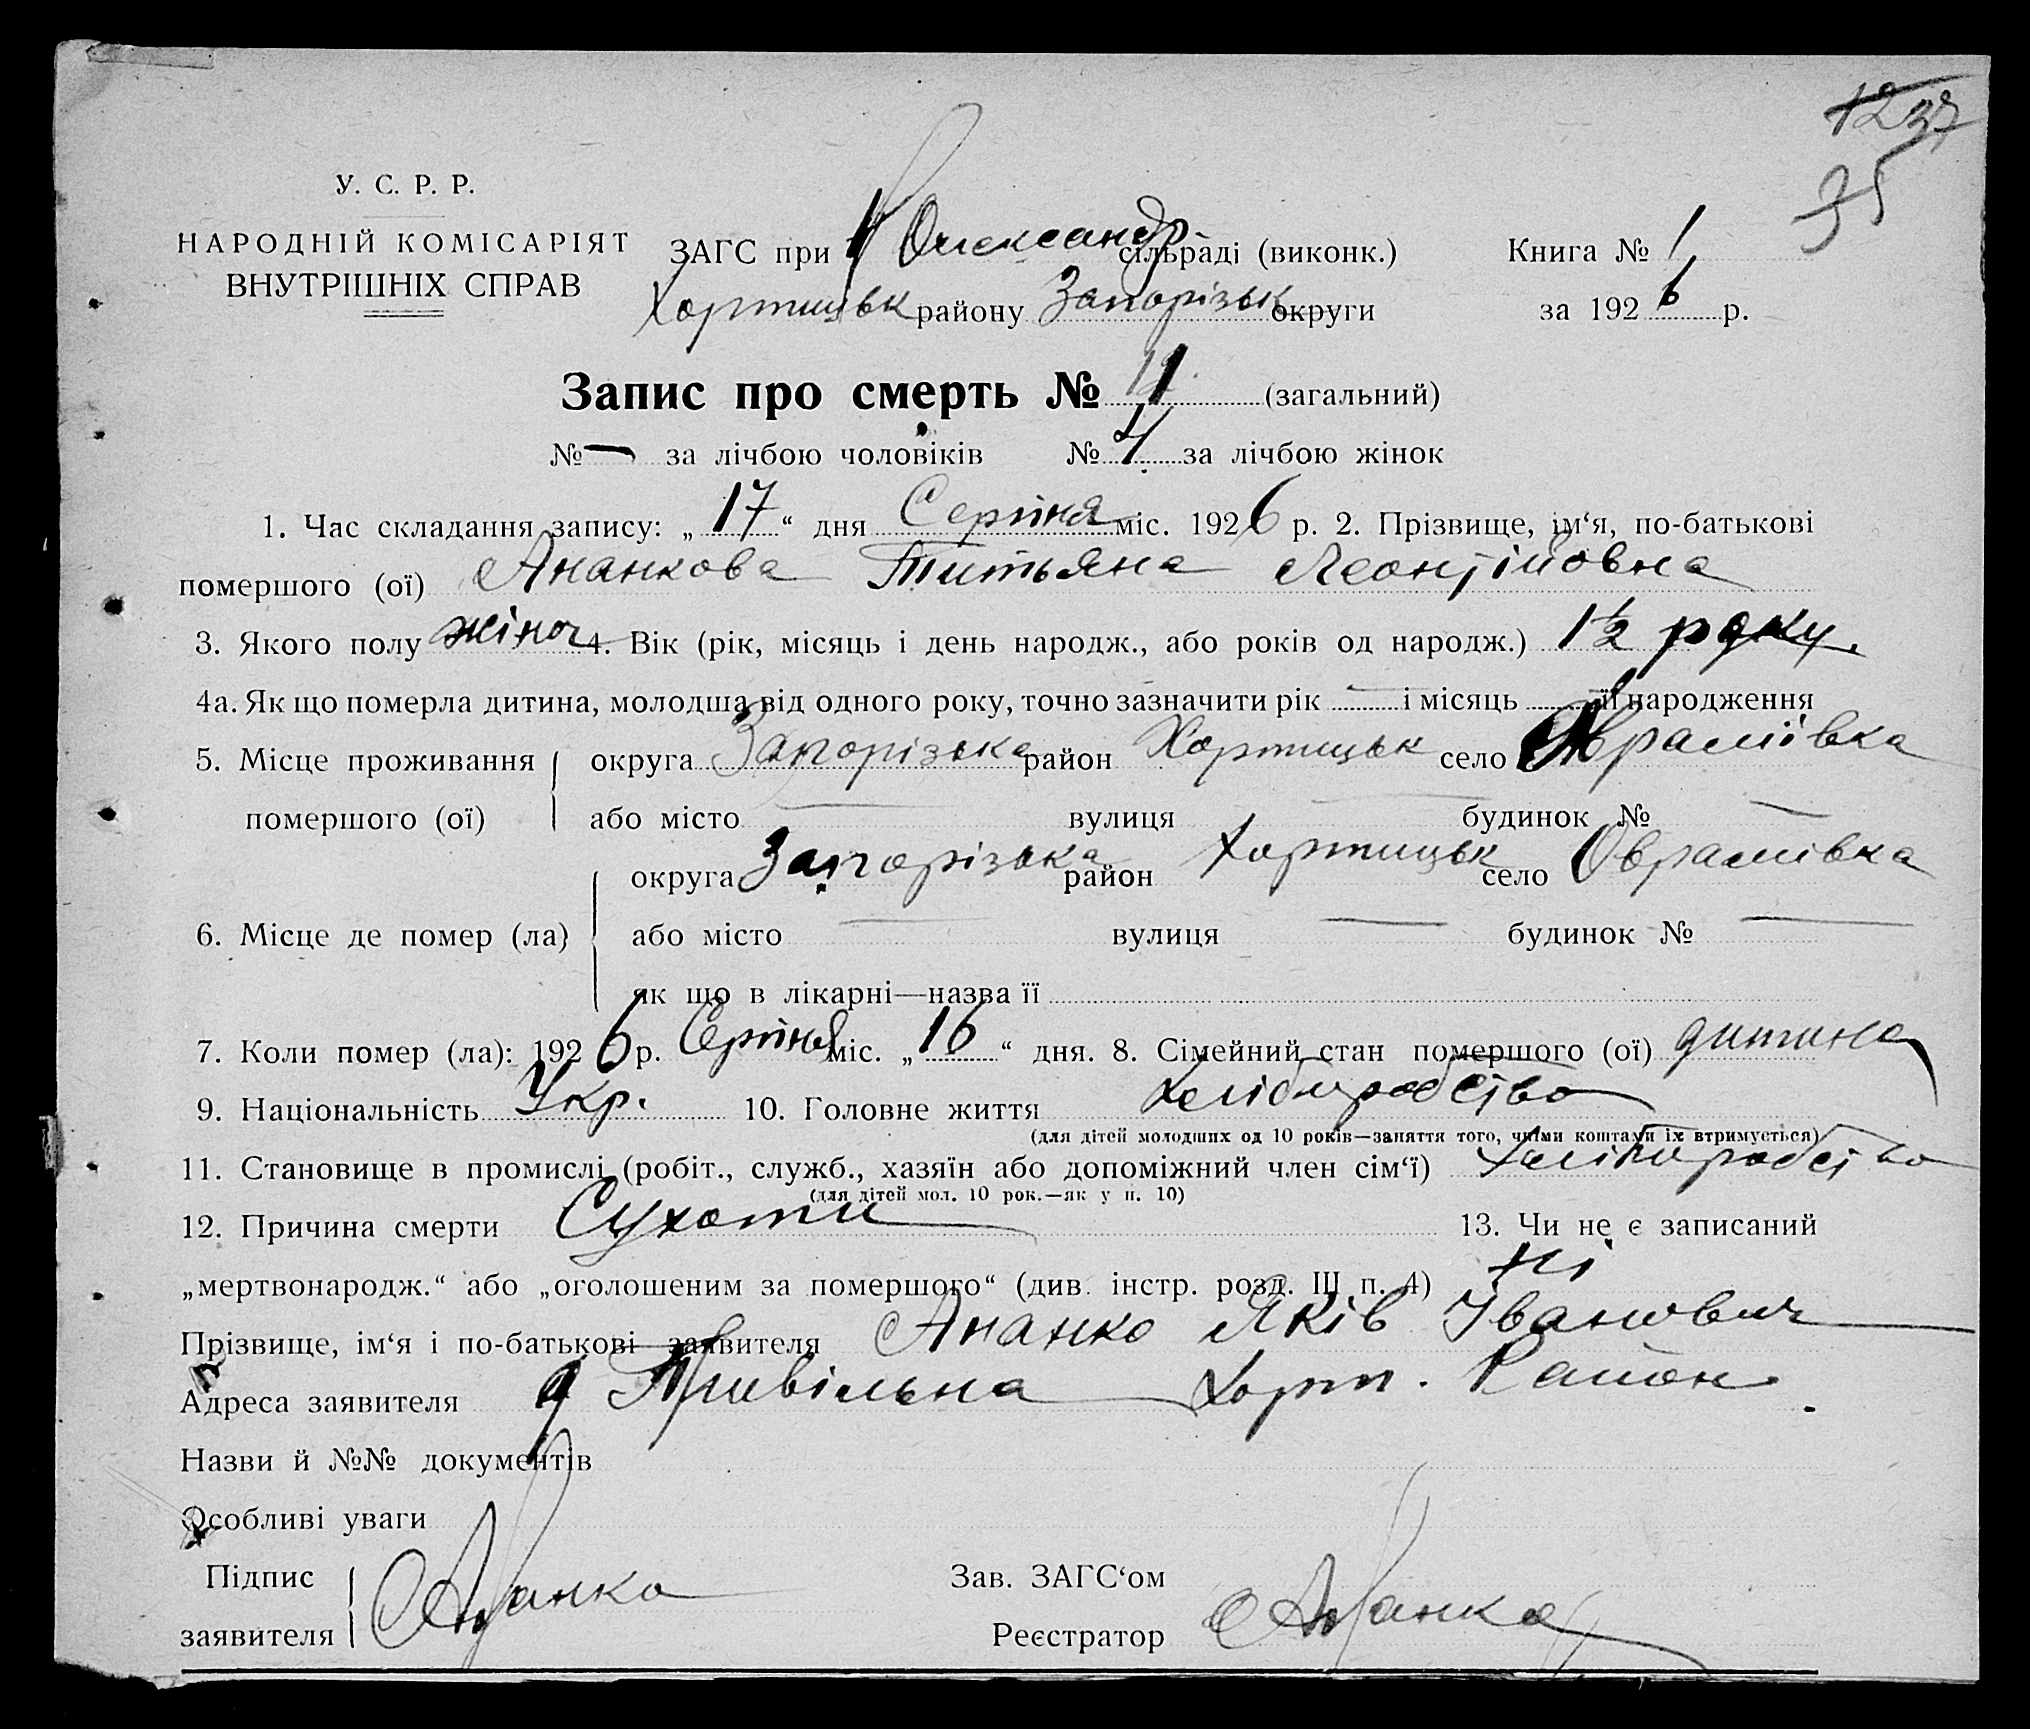 1237
35
У. С. Р. Р.
НАРОДНІЙ КОМІСАРІЯТ
ВНУТРІШНІХ СПРАВ
ЗАГС при Олександр. сільраді (виконк.)
Книга № 1
Хортицьк району Запорізьк округи
за 1926 р.
Запис про смерть № 11 (загальний)
№ — за лічбою чоловіків № 4 за лічбою жінок
1. Час складання запису: „17“ дня Серпня міс. 1926 р. 2. Прізвище, ім‘я, по-батькові
помершого (ої) Ананкова Титьяна Леонтійовна
3. Якого полу жіноч 4. Вік (рік, місяць і день народж., або років од народж.) 1½ року.
4а. Як що померла дитина, молодша від одного року, точно зазначити рік — і місяць її народження
5. Місце проживання округа Запорізька район Хортицьк село Оврамівка
помершого (ої) або місто — вулиця — будинок № —
округа Запорізька район Хортицьк село Оврамівка
6. Місце де помер (ла) або місто — вулиця — будинок № —
як що в лікарні—назва її
7. Коли помер (ла): 1926 р. Серпня міс. „16“ дня. 8. Сімейний стан помершого (ої) дитина
9. Національність Укр. 10. Головне життя Хліборобство
(для дітей молодших од 10 років—заняття того, чиїми коштами їх втримується)
11. Становище в промислі (робіт., служб., хазяїн або допоміжний член сім‘ї) Хліборобство
(для дітей мол. 10 рок.—як у п. 10)
12. Причина смерти Сухоти 13. Чи не є записаний
„мертвонародж.“ або „оголошеним за помершого“ (див. інстр. розд. III п. 4) Ні
Прізвище, ім‘я і по-батькові заявителя Ананко Яків Іванович
Адреса заявителя Привільна Хорт. Район.
Назви й №№ документів
Особливі уваги
Підпис
заявителя Ананко
Зав. ЗАГС‘ом
Реєстратор Ананко